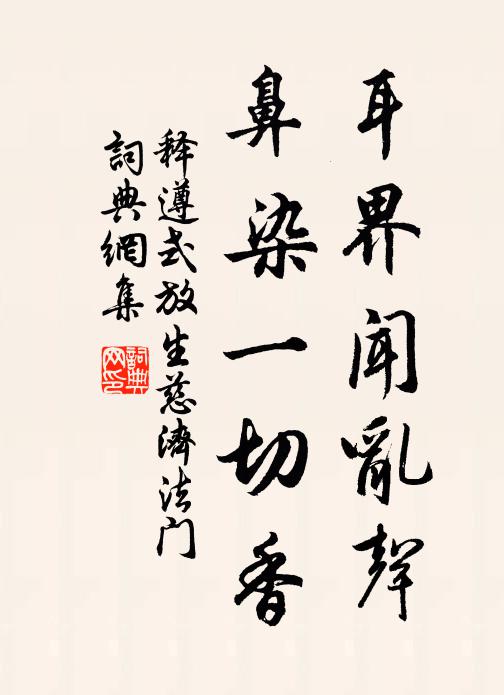 耳界闻亂聲
鼻染一切香
释遵式放生慈濟法门
詞典網集
詞典網印